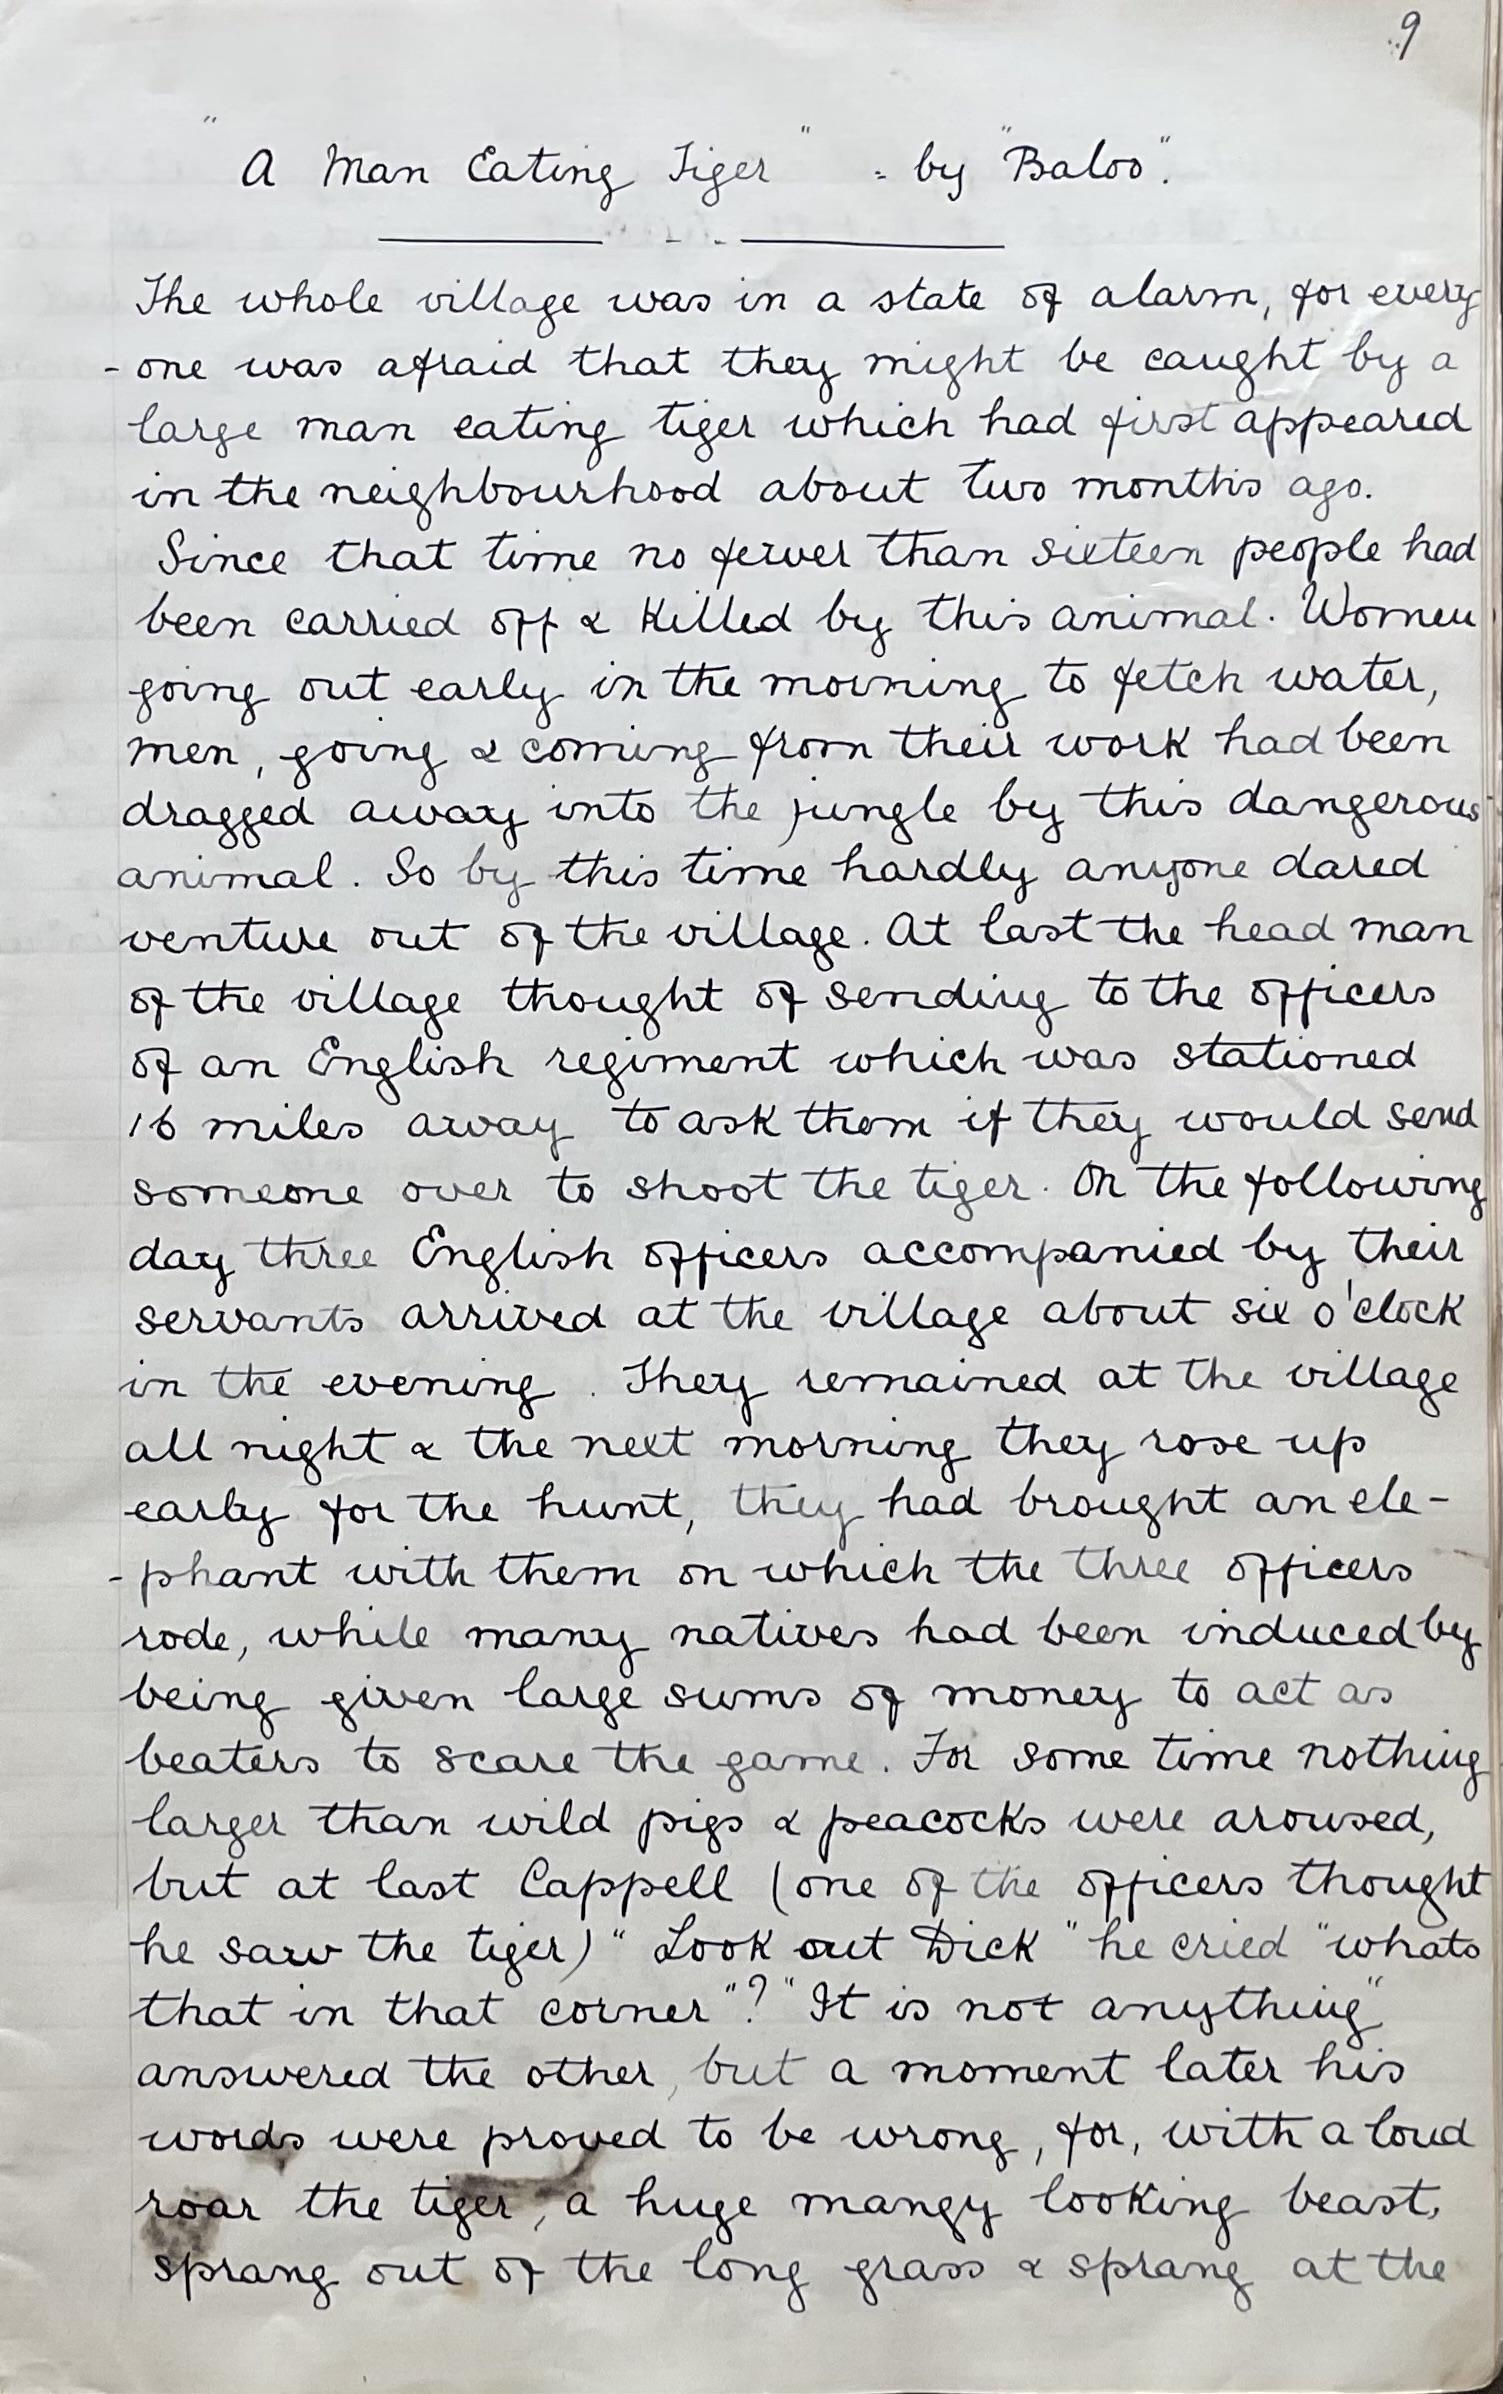 9
"A Man Eating Tiger" - by "Baloo".
The whole village was in a state of alarm, for every
-one was afraid that they might be caught by a
large man eating tiger which had first appeared
in the neighbourhood about two months ago.
Since that time no fewer than sixteen people had
been carried off & killed by this animal. Women
going out early in the morning to fetch water,
men, going & coming from their work had been
dragged away into the jungle by this dangerous
animal. So by this time hardly anyone dared
venture out of the village. At last the head man
of the village thought of sending to the officers
of an English regiment which was stationed
16 miles away to ask them if they would send
someone over to shoot the tiger. On the following
day three English officers accompanied by their
servants arrived at the village about six o'clock
in the evening. They remained at the village
all night & the next morning they rose up
early for the hunt, they had brought an ele-
-phant with them on which the three officers
rode, while many natives had been induced by
being given large sums of money to act as
beaters to scare the game. For some time nothing
larger than wild pigs & peacocks were aroused,
but at last Cappell (one of the officers thought
he saw the tiger) "Look out Dick" he cried "whats
that in that corner"? "It is not anything"
answered the other, but a moment later his
words were proved to be wrong, for, with a loud
roar the tiger, a huge mangy looking beast,
sprang out of the long grass & sprang at the